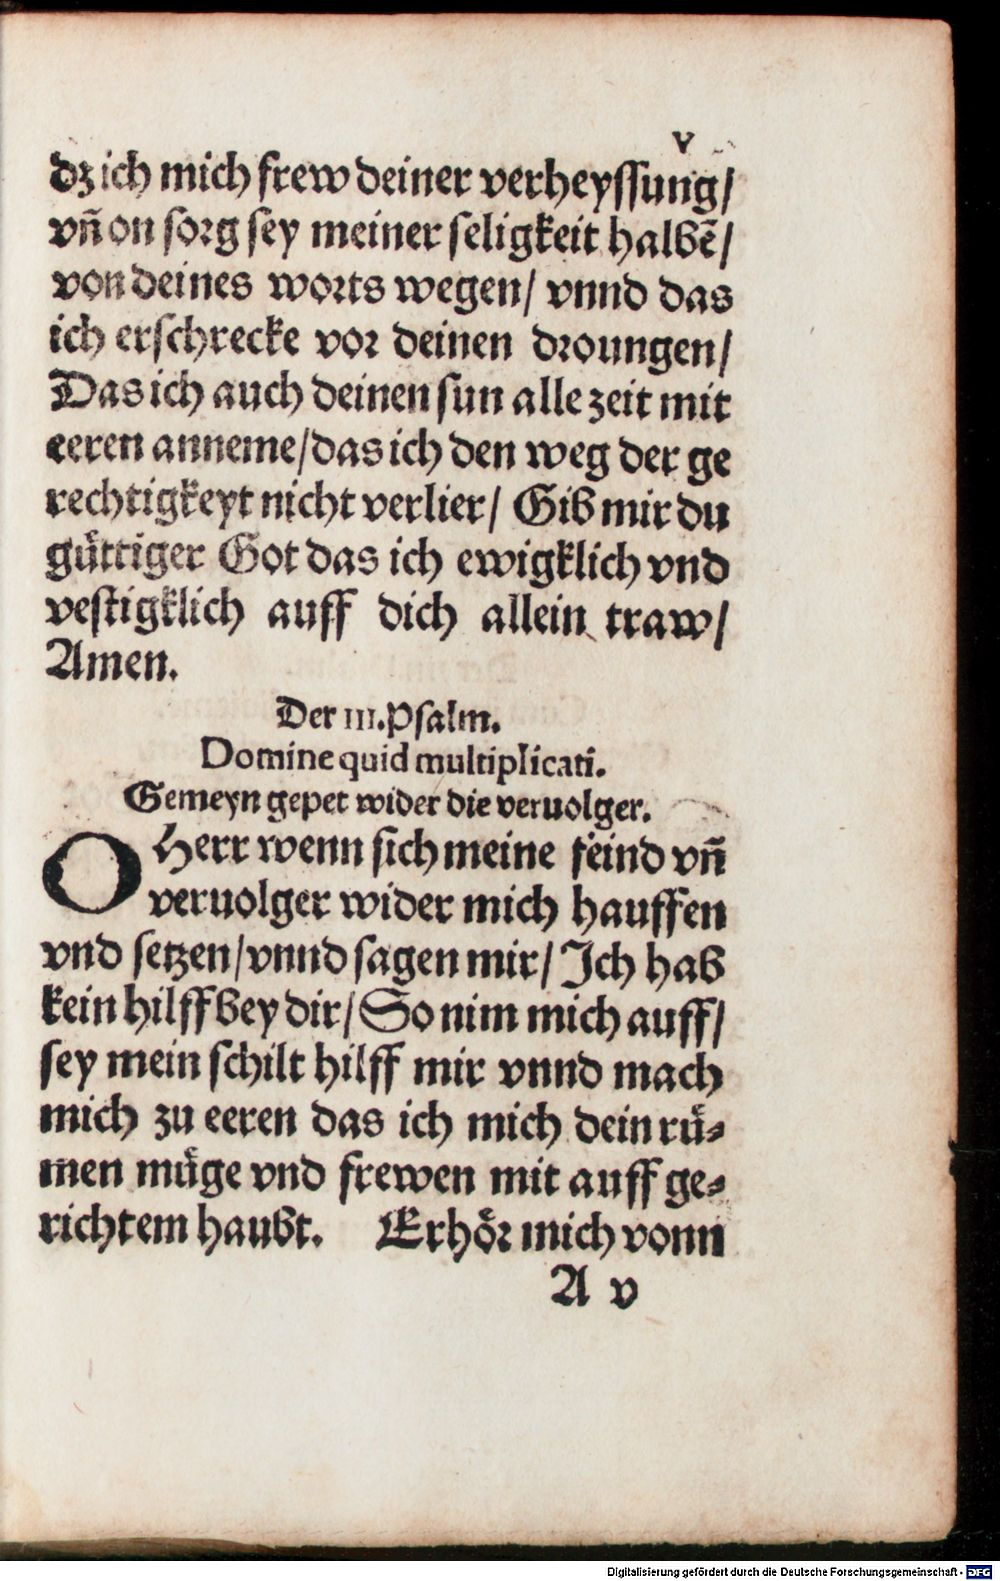 v
dz ich mich frew deiner verheyssung/
vñ on sorg sey meiner seligkeit halbē/
von deines worts wegen/ vnnd das
ich erschrecke vor deinen droungen/
Das ich auch deinen sun alle zeit mit
eeren anneme/das ich den weg der ge
rechtigkeyt nicht verlier/ Gib mir du
gu̎ttiger Got das ich ewigklich vnd
vestigklich auff dich allein traw/
Amen.
Der III. Psalm.
Domine quid multiplicati.
Gemeyn gepet wider die veruolger.
O Herr wenn sich meine feind vñ
veruolger wider mich hauffen
vnd setzen/vnnd sagen mir/ Ich hab
kein hilff bey dir/ So nim mich auff/
sey mein schilt hilff mir vnnd mach
mich zu eeren das ich mich dein ruͤ⸗
men muͤge vnd frewen mit auff ge⸗
richtem haubt. Erhoͤr mich vonn
A v
Digitalisierung gefördert durch die Deutsche Forschungsgemeinschaft - DFG